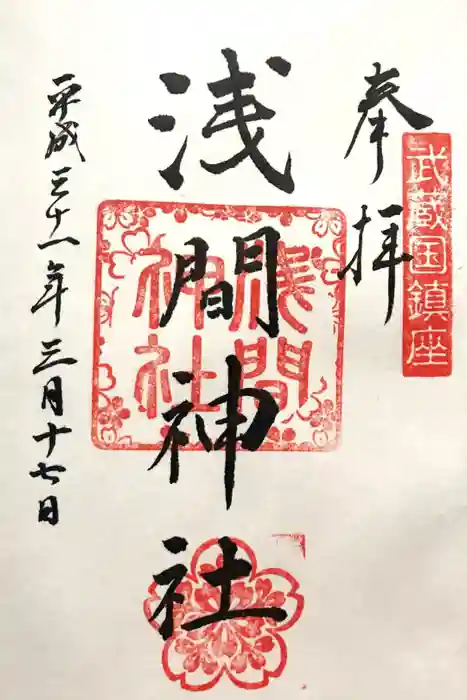 奉拝
武蔵国鎮座
浅間神社
浅間
神社
平成三十一年三月十七日